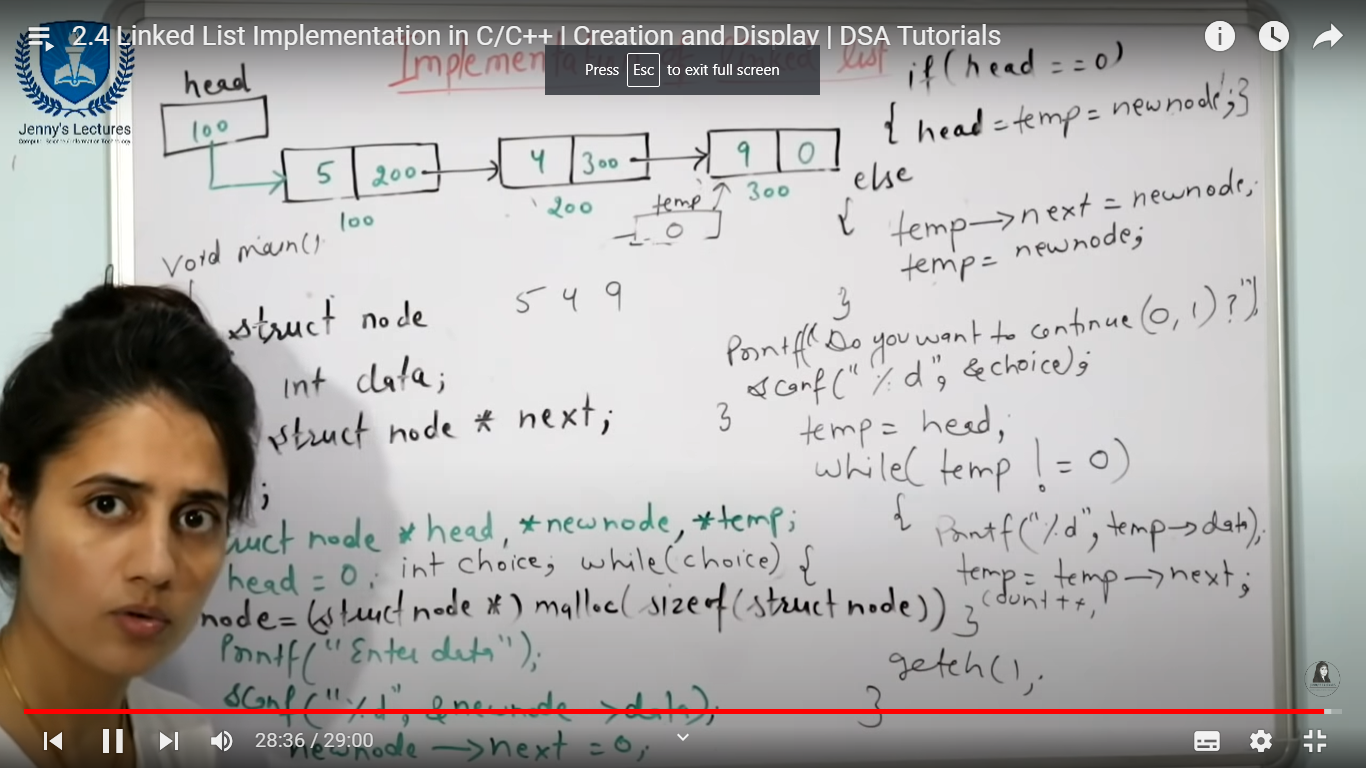 2.4 Linked List Implementation in C/C++ | Creation and Display | DSA Tutorials
Press Esc to exit full screen
Jenny's Lectures
Computer Science/Information Technology
list
head
100
5 200
100
4 300
200
9 0
300
temp
0
5 4 9
void main()
struct node
int data;
struct node * next;
;
struct node *head, *newnode, *temp;
head = 0; int choice; while(choice) {
node= (struct node *) malloc( sizeof(struct node))
Printf("Enter data");
scanf("%d", &newnode->data);
newnode ->next = 0;
if(head ==0)
{ head=temp=newnode;}
else
{ temp->next = newnode;
temp= newnode;
}
Printf("Do you want to continue(0,1)?");
scanf("%d", &choice);
}
temp= head;
while( temp != 0)
{ Printf("%d", temp->data);
temp= temp->next;
count++;
}
getch();
}
28:36 / 29:00